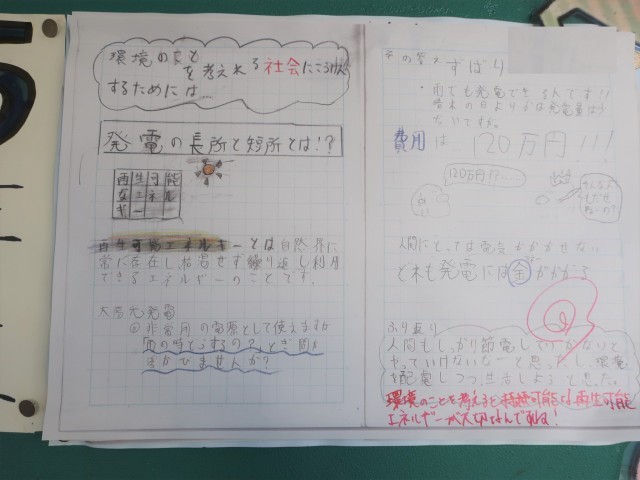 環境のことを考えれる社会に
するためには…
発電の長所と短所とは!?
再生可能
なエネル
ギー
再生可能エネルギーとは自然界に
常に存在し、枯渇せず繰り返し利用
できるエネルギーのことです。
太陽光発電
非常用の電源として使えますが
雨の時どうするの?とぎ問が
うかびませんか?
その答えずばり
・雨でも発電できるんです!!
晴れの日よりは発電量は少
ないですが。
費用は120万円!!!
120万円!?…
そんなん
人間にとっては電気がかかせない
とれも発電には金がかかる
ふり返り
人間もしっかり節電していかないと
やっていけないなーと思ったし、環境
も配電しつつ生活しようと思った。
環境のことを考えると持続可能な再生可能
エネルギーが大切なんですね!